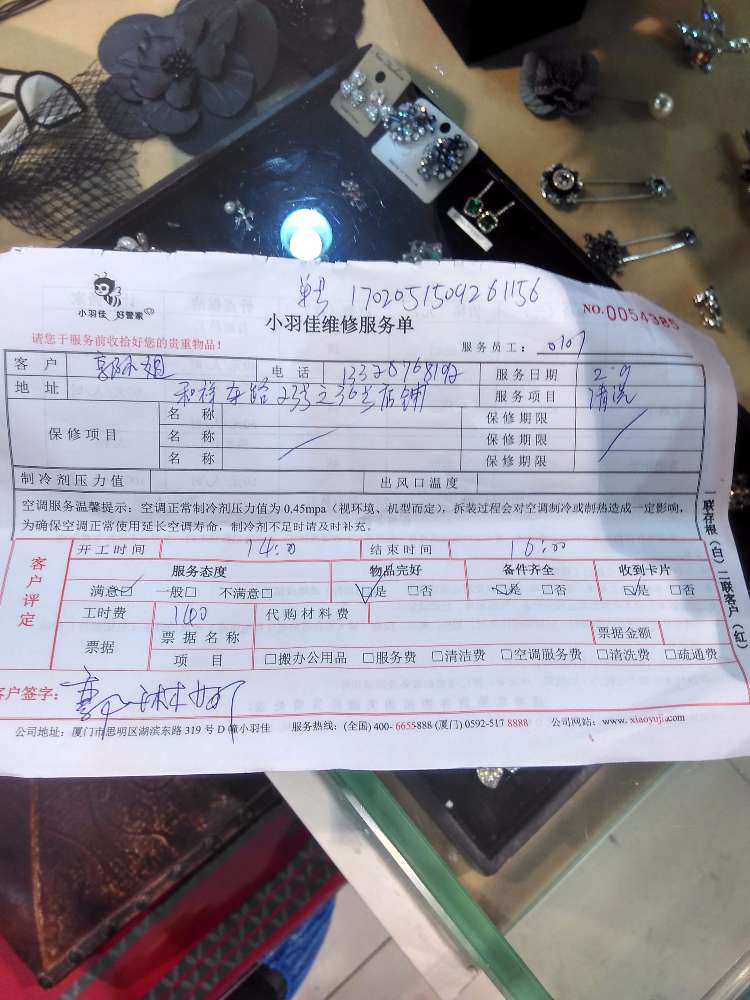 单号 1702051509261156
小羽佳 好管家
小羽佳维修服务单
NO.0054385
请您于服务前收拾好您的贵重物品！
服务员工： 0107
客 户 郭小姐 电 话 服务日期 2.9
地 址 和祥东路23号之36号店铺 服务项目 清洗
保修项目 名 称 保修期限
名 称 保修期限
名 称 保修期限
制冷剂压力值 出风口温度
空调服务温馨提示：空调正常制冷剂压力值为 0.45mpa（视环境、机型而定），拆装过程会对空调制冷或制热造成一定影响，
为确保空调正常使用延长空调寿命，制冷剂不足时请及时补充。
客户评定
开工时间 14:0 结束时间 16:00
服务态度 物品完好 备件齐全 收到卡片
满意☑ 一般□ 不满意□ ☑是 □否 ☑是 □否 ☑是 □否
工时费 140 代购材料费
票据 票据名称 票据金额
项 目 □搬办公用品 □服务费 □清洁费 □空调服务费 □清洗费 □疏通费
客户签字：
公司地址：厦门市思明区湖滨东路 319 号 D 幢小羽佳 服务热线：(全国) 400- 6655888 (厦门) 0592-517 8888 公司网站：www. xiaoyuji.com
一联存根（白）二联客户（红）